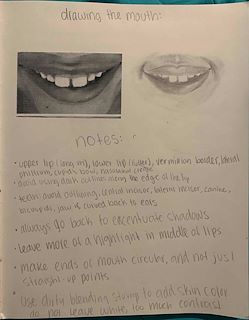 drawing the mouth:
notes:
• upper lip (long m), lower lip (wider), vermilion border, lateral
philtrum, cupid's bow, nasolabial crease
• avoid using dark outlines along the edge of the lip
• teeth: avoid outlining, central incisor, lateral incisor, canine,
bicuspids, jaw is curved back to ears
• always go back to accentuate shadows
• leave more of a highlight in middle of lips
• make ends of mouth circular, and not just
straight-up points
• Use dirty blending stump to add skin color
do not leave white, too much contrast